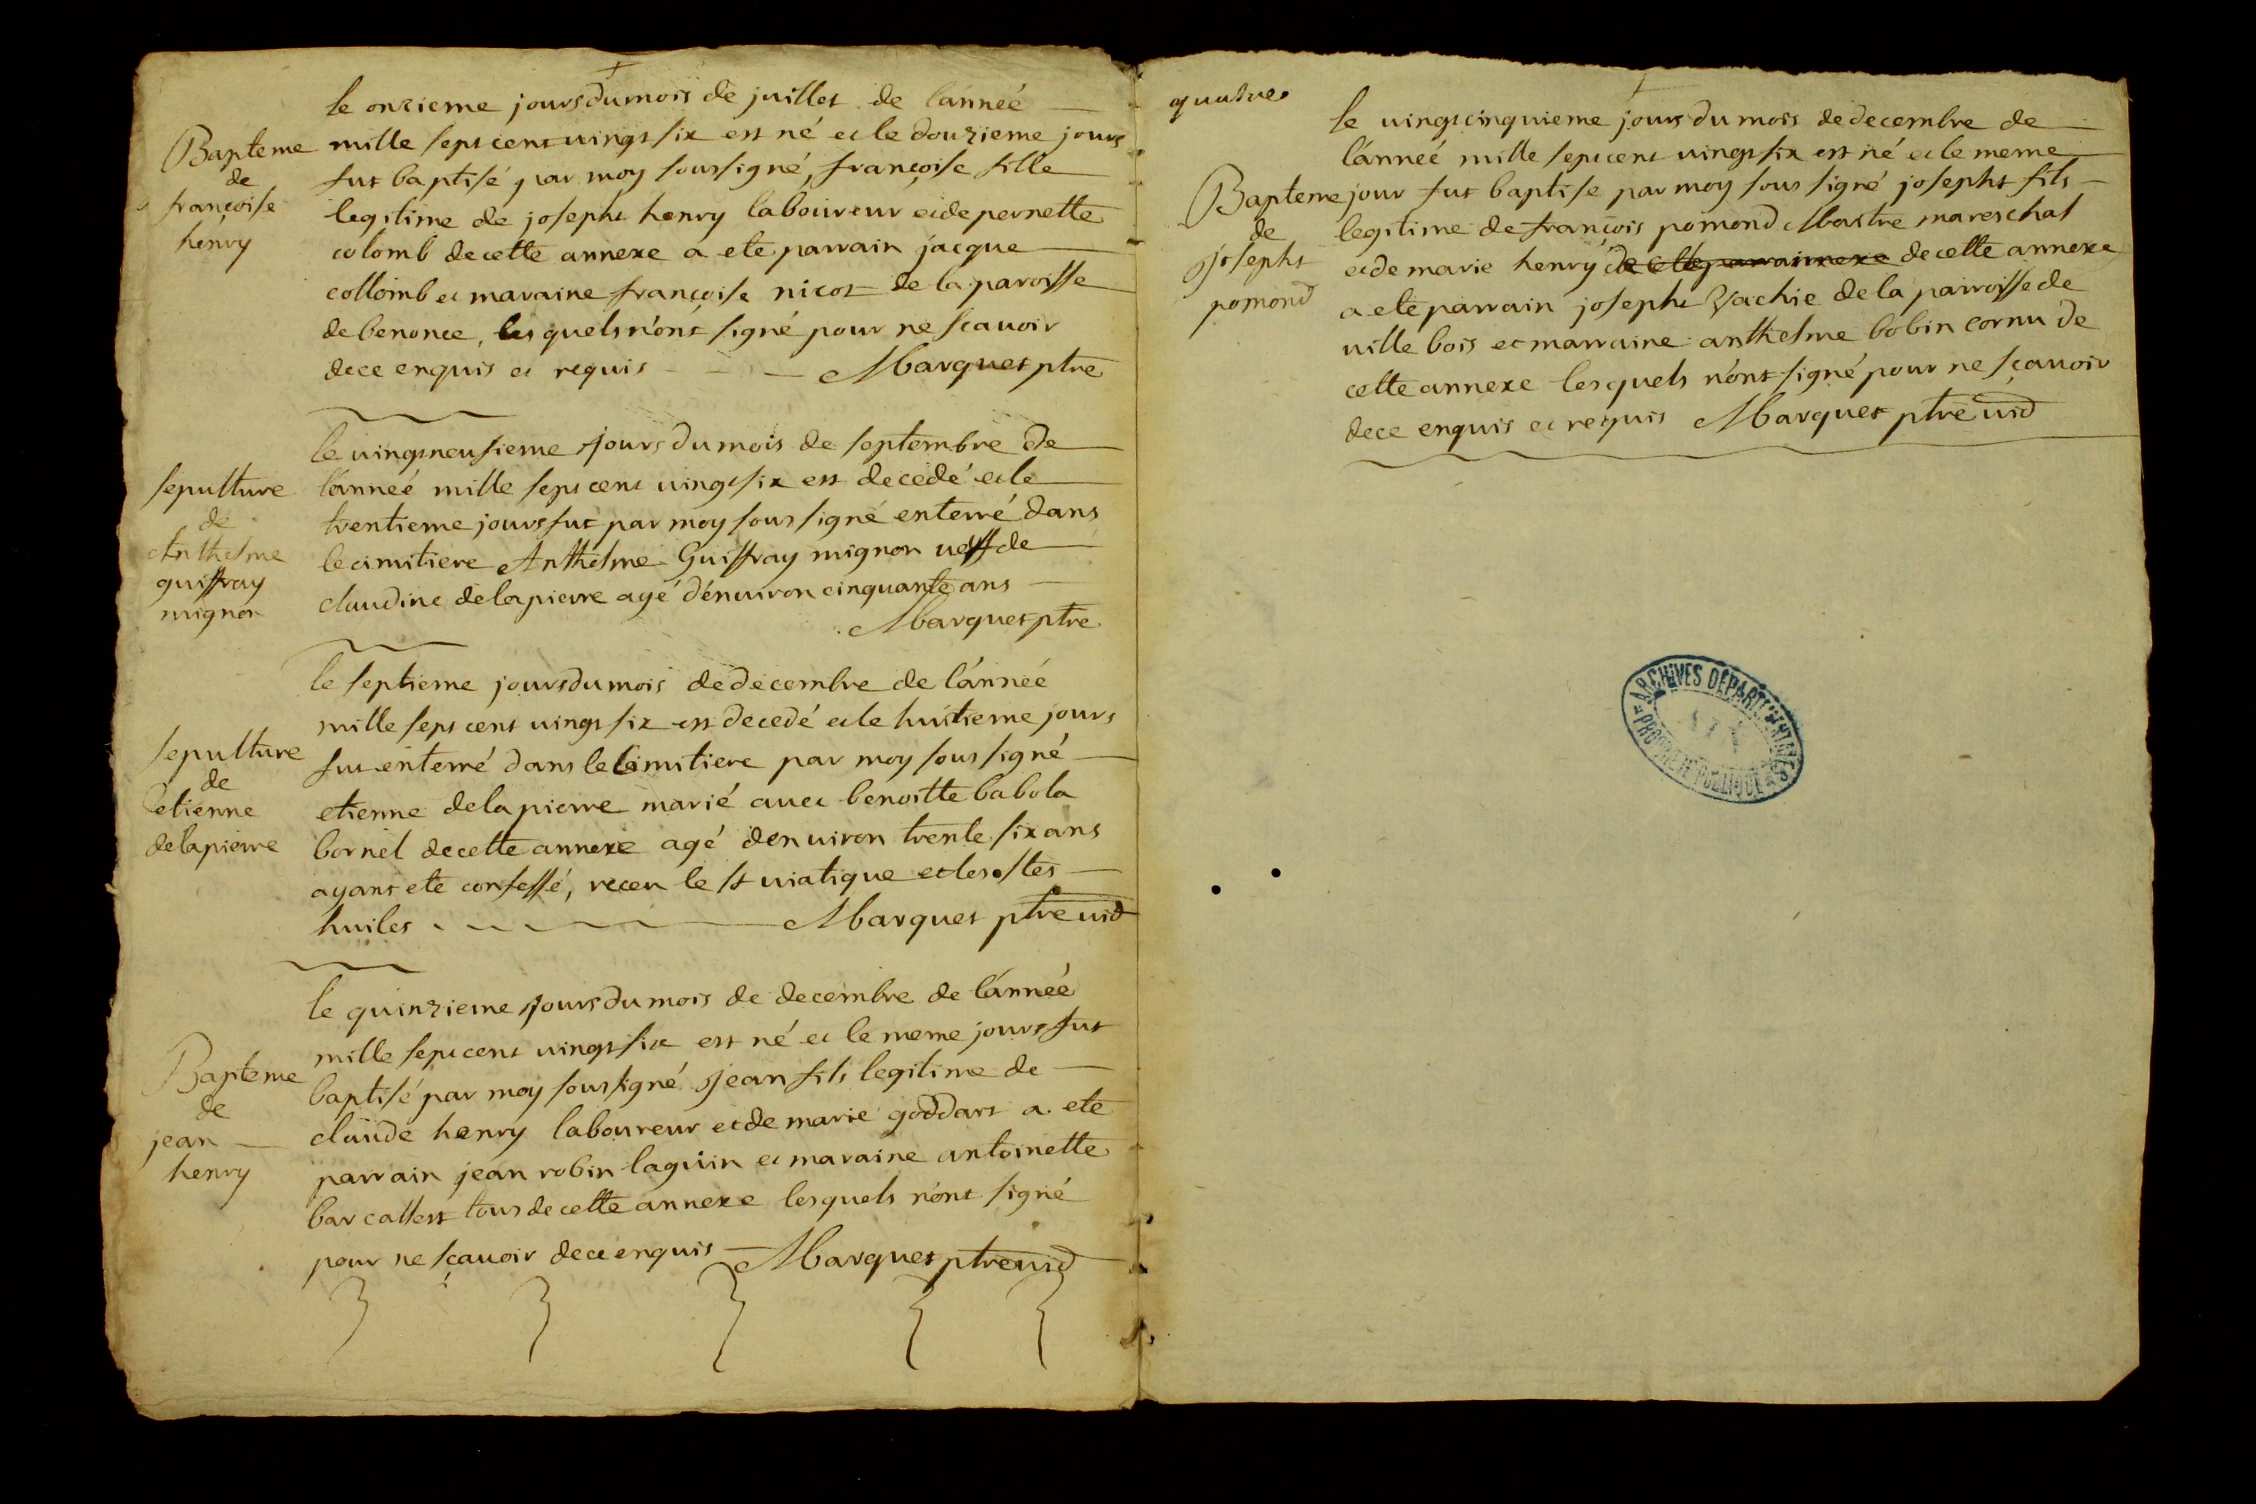 le onzieme jours du mois de juillet de l'anneé
Bapteme
de
françoise
henry
mille sept cent vingt six est né et le douzieme jours
fut baptisé par moy soussigné, françoise fille
legitime de josepht henry laboureur et de pernette
colomb de cette annexe a ete parrain jacque
collomb et maraine françoise nicot de la paroisse
de benonce, les quels n'ont signé pour ne scavoir
de ce enquis et requis Marquet ptre
sepulture
de
Anthelme
guiffray
mignon
le vingt neufieme jours du mois de septembre de
l'anneé mille sept cent vingt six est decedé et le
trentieme jours fut par moy sous signé enterré dans
le cimitiere Anthelme Guiffray mignon veff de
claudine delapierre agé d'environ cinquante ans
Marquet ptre
sepulture
de
etienne
delapierre
le septieme jours du mois de decembre de l'anneé
mille sept cent vingt six est decedé et le huitieme jours
fut enterré dans le cimitiere par moy sous signé
etienne delapierre marié avec benoitte babola
bornel de cette annexe agé d'environ trente six ans
ayant ete confessé, receu le st viatique et les stes
huiles Marquet ptre vid
Bapteme
de
jean
henry
le quinzieme jours du mois de decembre de l'anneé
mille sept cent vingt six est né et le meme jours fut
baptisé par moy soussigné jean fils legitime de
claude henry laboureur et de marie goddart a ete
parrain jean robin laguin et maraine antoinette
barcallest tous de cette annexe lesquels n'ont signé
pour ne sçavoir de ce enquis Marquet ptre vid
quatre
Bapteme
de
josepht
pomond
le vingt cinquieme jours du mois de decembre de
l'anneé mille sept cent vingt six est né et le meme
jour fut baptise par moy sous signé josepht fils
legitime de françois pomond Maitre mareschal
et de marie henry de cette annexe
a ete parrain josepht Vachie de la parroisse de
ville bois et marraine anthelme bobin cornu de
cette annexe les quels n'ont signé pour ne sçavoir
de ce enquis et requis Marquet ptre vid
ARCHIVES DEPARTEMENTALES
PROPRIETE PUBLIQUE